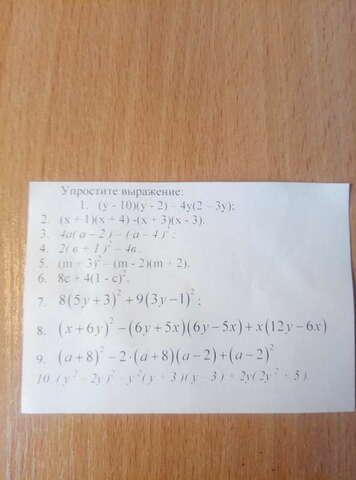 Упростите выражение:
1. (y - 10)(y - 2) – 4y(2 – 3y);
2. (x + 1)(x + 4) -(x + 3)(x - 3).
3. 4a(a – 2) – (a – 4)²;
4. 2(в + 1)² – 4в.
5. (m + 3)² – (m - 2)(m + 2).
6. 8c + 4(1 - c)².
7. 8(5y+3)²+9(3y−1)²;
8. (x+6y)²−(6y+5x)(6y−5x)+x(12y−6x)
9. (a+8)²−2·(a+8)(a−2)+(a−2)²
10. (y² – 2y)² – y²(y + 3)(y – 3) + 2y(2y² + 5).